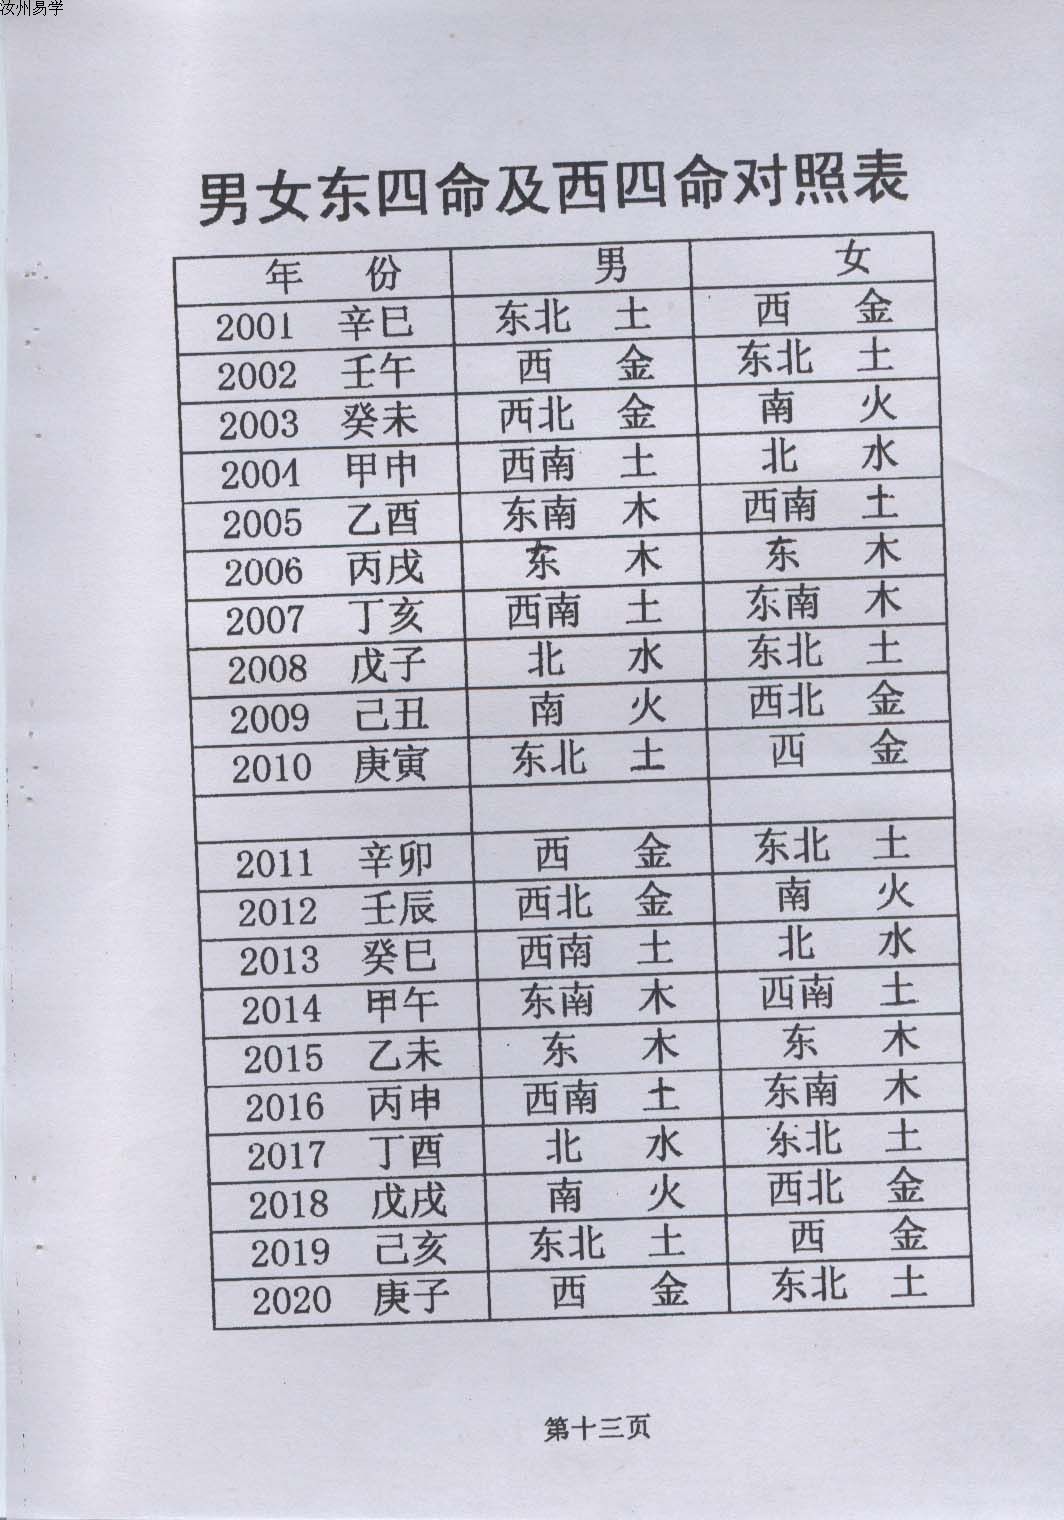 汝州易学
男女东四命及西四命对照表
年 份 男 女
2001 辛巳 东北 土 西 金
2002 壬午 西 金 东北 土
2003 癸未 西北 金 南 火
2004 甲申 西南 土 北 水
2005 乙酉 东南 木 西南 土
2006 丙戌 东 木 东 木
2007 丁亥 西南 土 东南 木
2008 戊子 北 水 东北 土
2009 己丑 南 火 西北 金
2010 庚寅 东北 土 西 金
2011 辛卯 西 金 东北 土
2012 壬辰 西北 金 南 火
2013 癸巳 西南 土 北 水
2014 甲午 东南 木 西南 土
2015 乙未 东 木 东 木
2016 丙申 西南 土 东南 木
2017 丁酉 北 水 东北 土
2018 戊戌 南 火 西北 金
2019 己亥 东北 土 西 金
2020 庚子 西 金 东北 土
第十三页